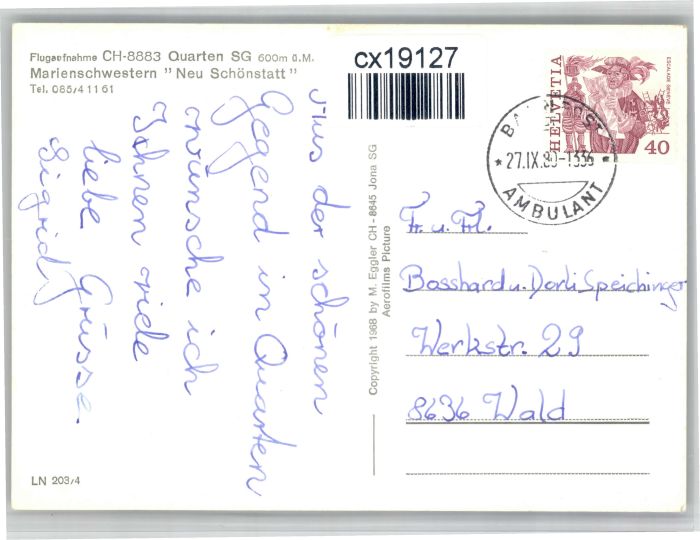 Flugaufnahme CH-8883 Quarten SG 600m ü.M.
Marienschwestern "Neu Schönstatt"
Tel. 085/4 11 61
cx19127
Aus der schönen
Gegend in Quarten
wünsche ich
Ihnen viele
liebe Grüsse.
Sigrid
LN 203/4
Copyright 1968 by M. Eggler CH-8645 Jona SG
Aerofilms Picture
HELVETIA
ESCALADE GENÈVE
40
* 27.IX.80-1336 *
AMBULANT
Fr. u. Frl.
Bosshard u. Dorli Speichinger
Werkstr. 29
8636 Wald